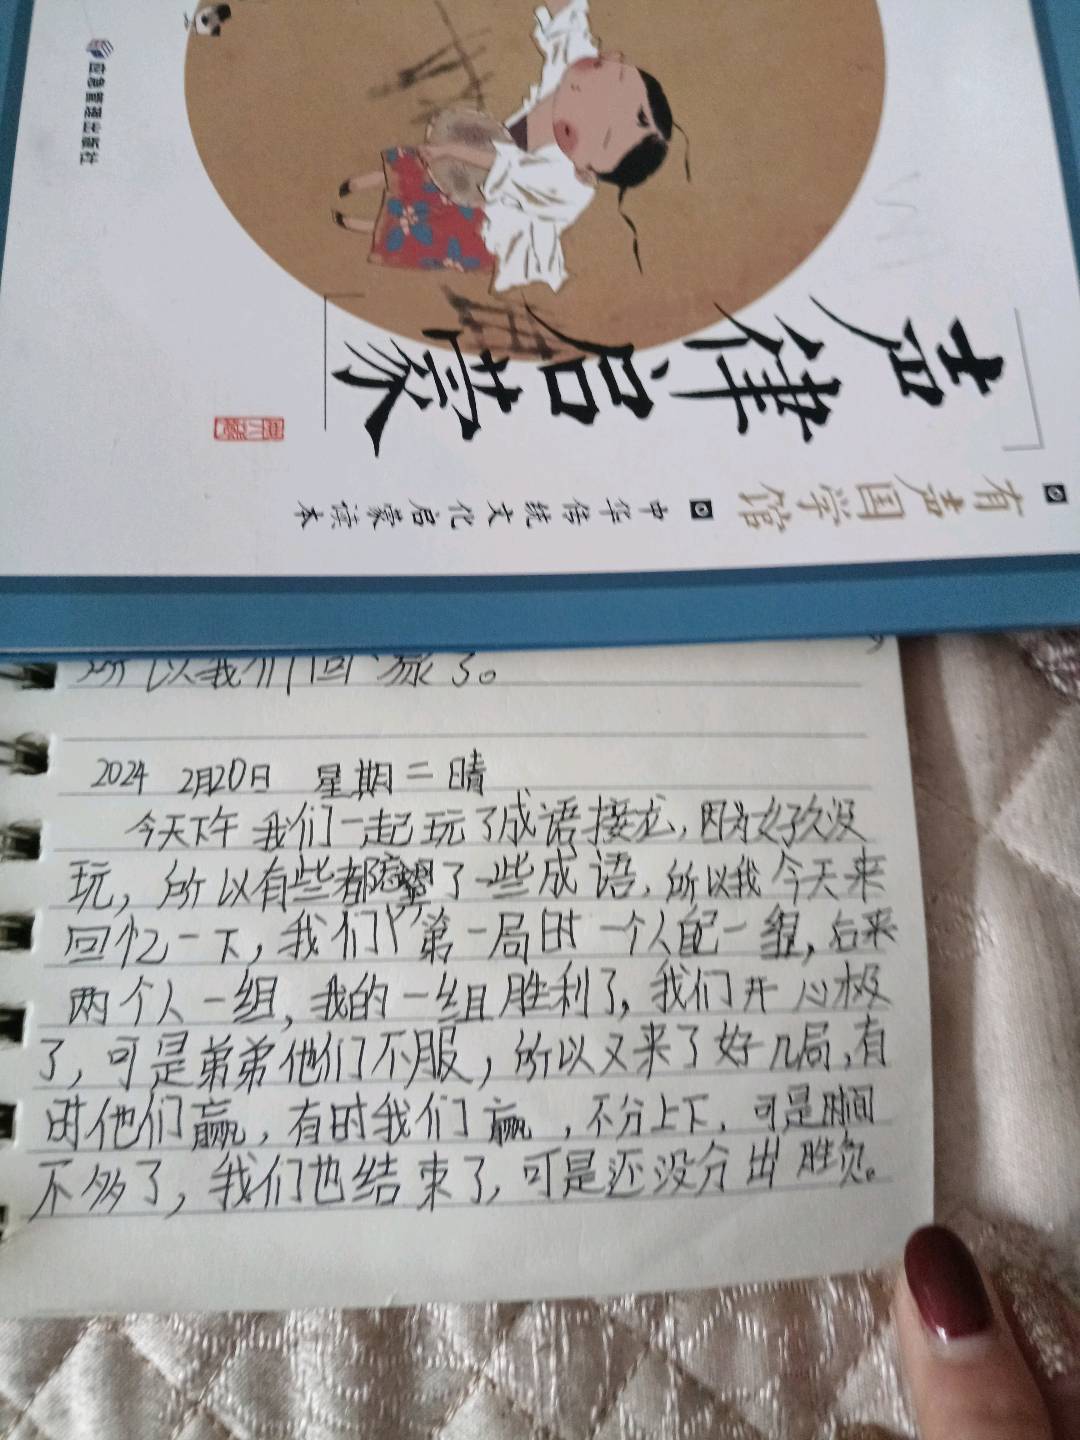 应急管理出版社
声律启蒙
有声国学馆
中华传统文化启蒙读本
所以我们回家了。
2024 2月20日 星期二 晴
今天下午我们一起玩了成语接龙,因为好久没
玩,所以有些都忘了一些成语,所以我今天来
回忆一下,我们第一局时一个人配一组,后来
两个人一组,我的一组胜利了,我们开心极
了,可是弟弟他们不服,所以又来了好几局,有
时他们赢,有时我们赢,不分上下,可是时间
不多了,我们也结束了,可是还没分出胜负。